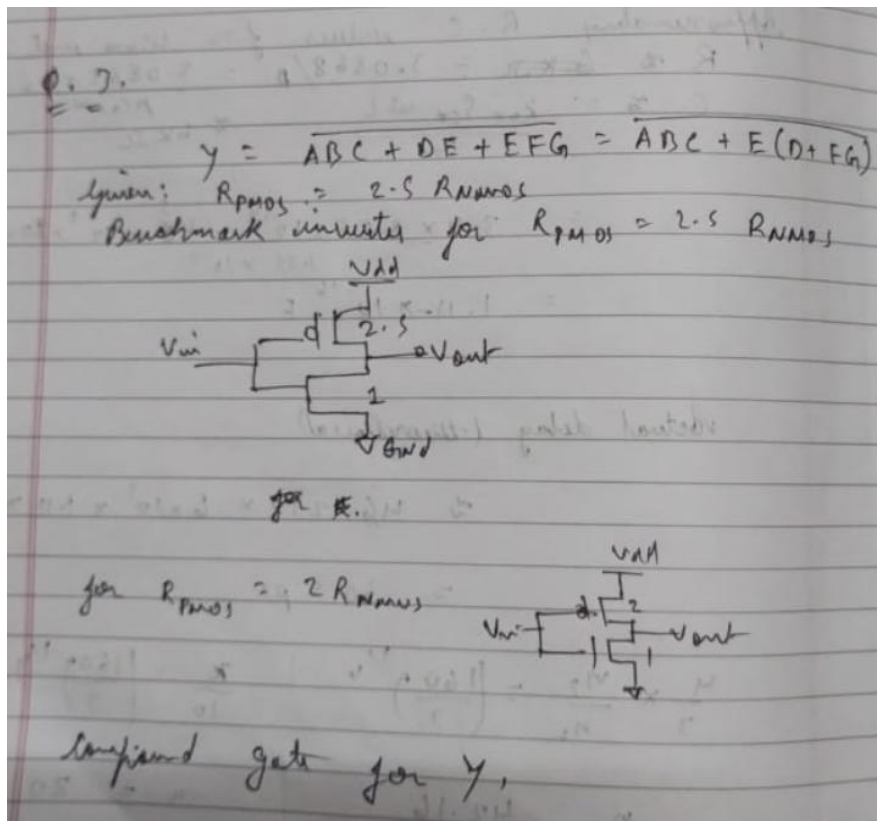 Q. 7.
Y = \overline{ABC + DE + EFG} = \overline{ABC + E(D+FG)}
Given: R_{PMOS} = 2.5 R_{NMOS}
Benchmark inverter for R_{PMOS} = 2.5 R_{NMOS}
Vdd
2.5
Vin
Vout
1
Gnd
for
for R_{PMOS} = 2 R_{NMOS}
Vdd
2
Vin
Vout
1
Compound gate for Y,